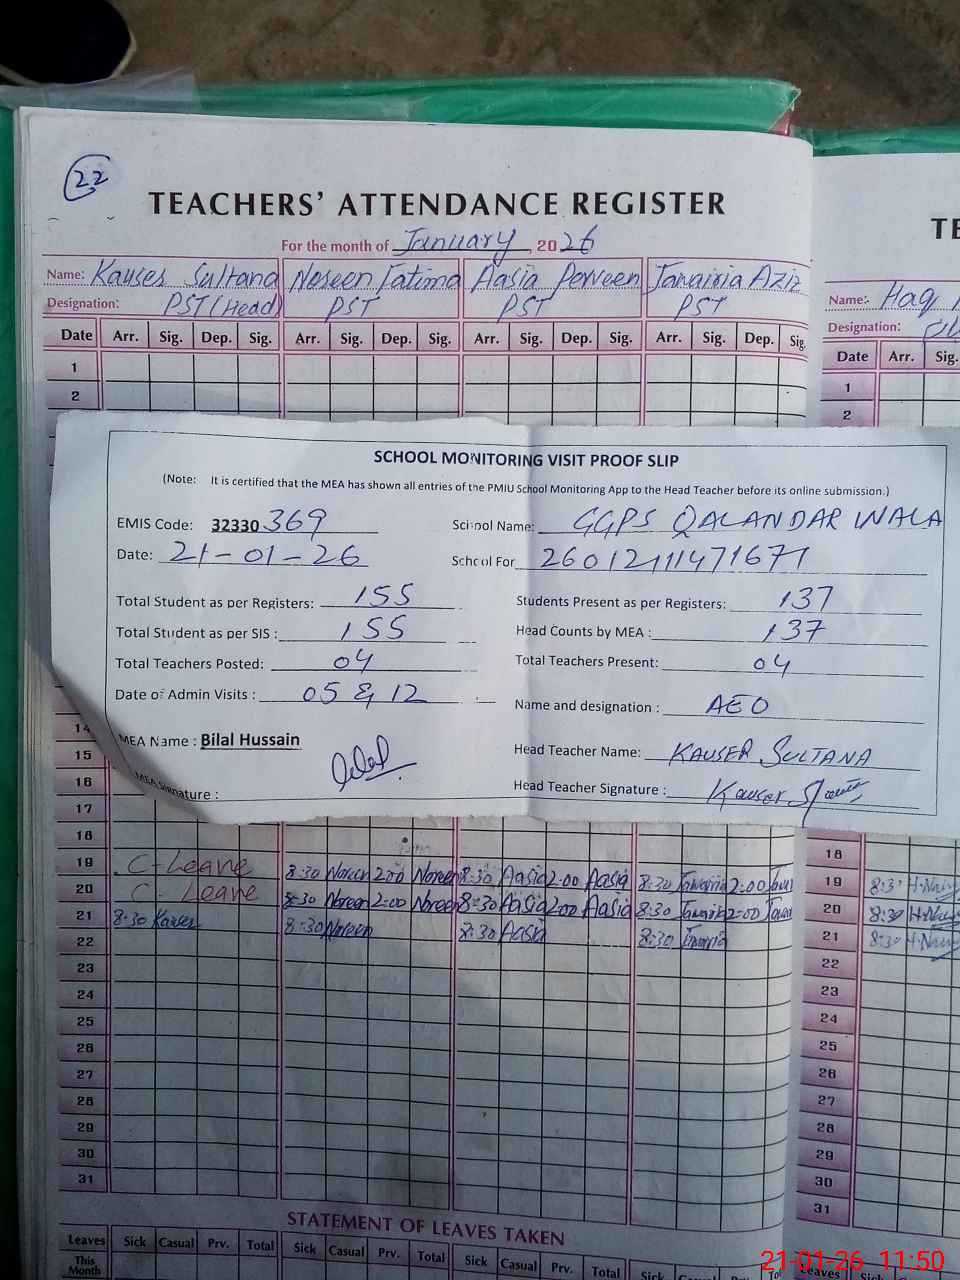 22
TEACHERS' ATTENDANCE REGISTER
For the month of January 2026
Name: Kauser Sultana Noreen Fatima Aasia Perveen Jawairia Aziz
Designation: PST (Head) PST PST PST
Date Arr. Sig. Dep. Sig. Arr. Sig. Dep. Sig. Arr. Sig. Dep. Sig. Arr. Sig. Dep. Sig.
1
2
SCHOOL MONITORING VISIT PROOF SLIP
(Note: It is certified that the MEA has shown all entries of the PMIU School Monitoring App to the Head Teacher before its online submission.)
EMIS Code: 32330 369 School Name: GGPS QALANDAR WALA
Date: 21-01-26 School For 26012111471671
Total Student as per Registers: 155 Students Present as per Registers: 137
Total Student as per SIS : 155 Head Counts by MEA : 137
Total Teachers Posted: 04 Total Teachers Present: 04
Date of Admin Visits : 05 & 12 Name and designation : AEO
MEA Name : Bilal Hussain Head Teacher Name: KAUSER SULTANA
MEA Signature : Head Teacher Signature : Kauser
14
15
16
17
18
19 C-Leave 8:30 Noreen 2:00 Noreen 8:30 Aasia 2:00 Aasia 8:30 Jawairia 2:00
20 C-Leave 8:30 Noreen 2:00 Noreen 8:30 Aasia 2:00 Aasia 8:30 Jawairia 2:00
21 8:30 Kauser 8:30 Noreen 8:30 Aasia 8:30 Jawairia
22
23
24
25
26
27
28
29
30
31
STATEMENT OF LEAVES TAKEN
Leaves Sick Casual Prv. Total Sick Casual Prv. Total Sick Casual Prv. Total Sick Casual Prv.
This Month
TE
Name: Haq
Designation:
Date Arr. Sig.
1
2
18
19 8:30
20 8:30
21 8:30
22
23
24
25
26
27
28
29
30
31
Leaves Sick
21-01-26 11:50